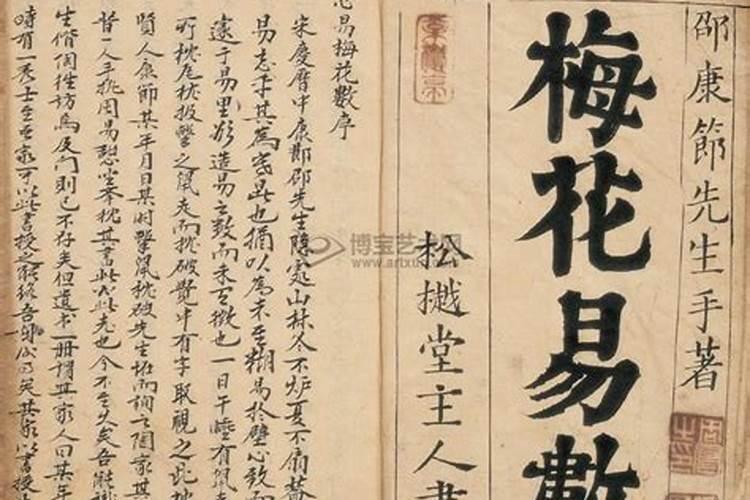 邵康節先生手著
梅花易數
松樾堂主人書
心易梅花數序
宋慶曆中康節邵先生隱處山林冬不炉夏不扇蓋
易忘乎其為寒暑也猶以為未至糊易於壁心致而
邃于易里欲造易之數而未有徵也一日午睡有鼠走
所枕尾枕投擊之鼠走而枕破覺中有字取視之此枕
賢人康節某年月日某时擊鼠枕破先生怪而詢之陶家其
昔一人手执周易憩坐举枕其書此必此老也今不至久矣吾能識
生偕陶往訪焉及门則已不存矣但遺书一册谓其家人曰某年
時有一秀士至吾家可以此書授之能終吾身 其家以書授
博宝艺术网
www.artxun.com